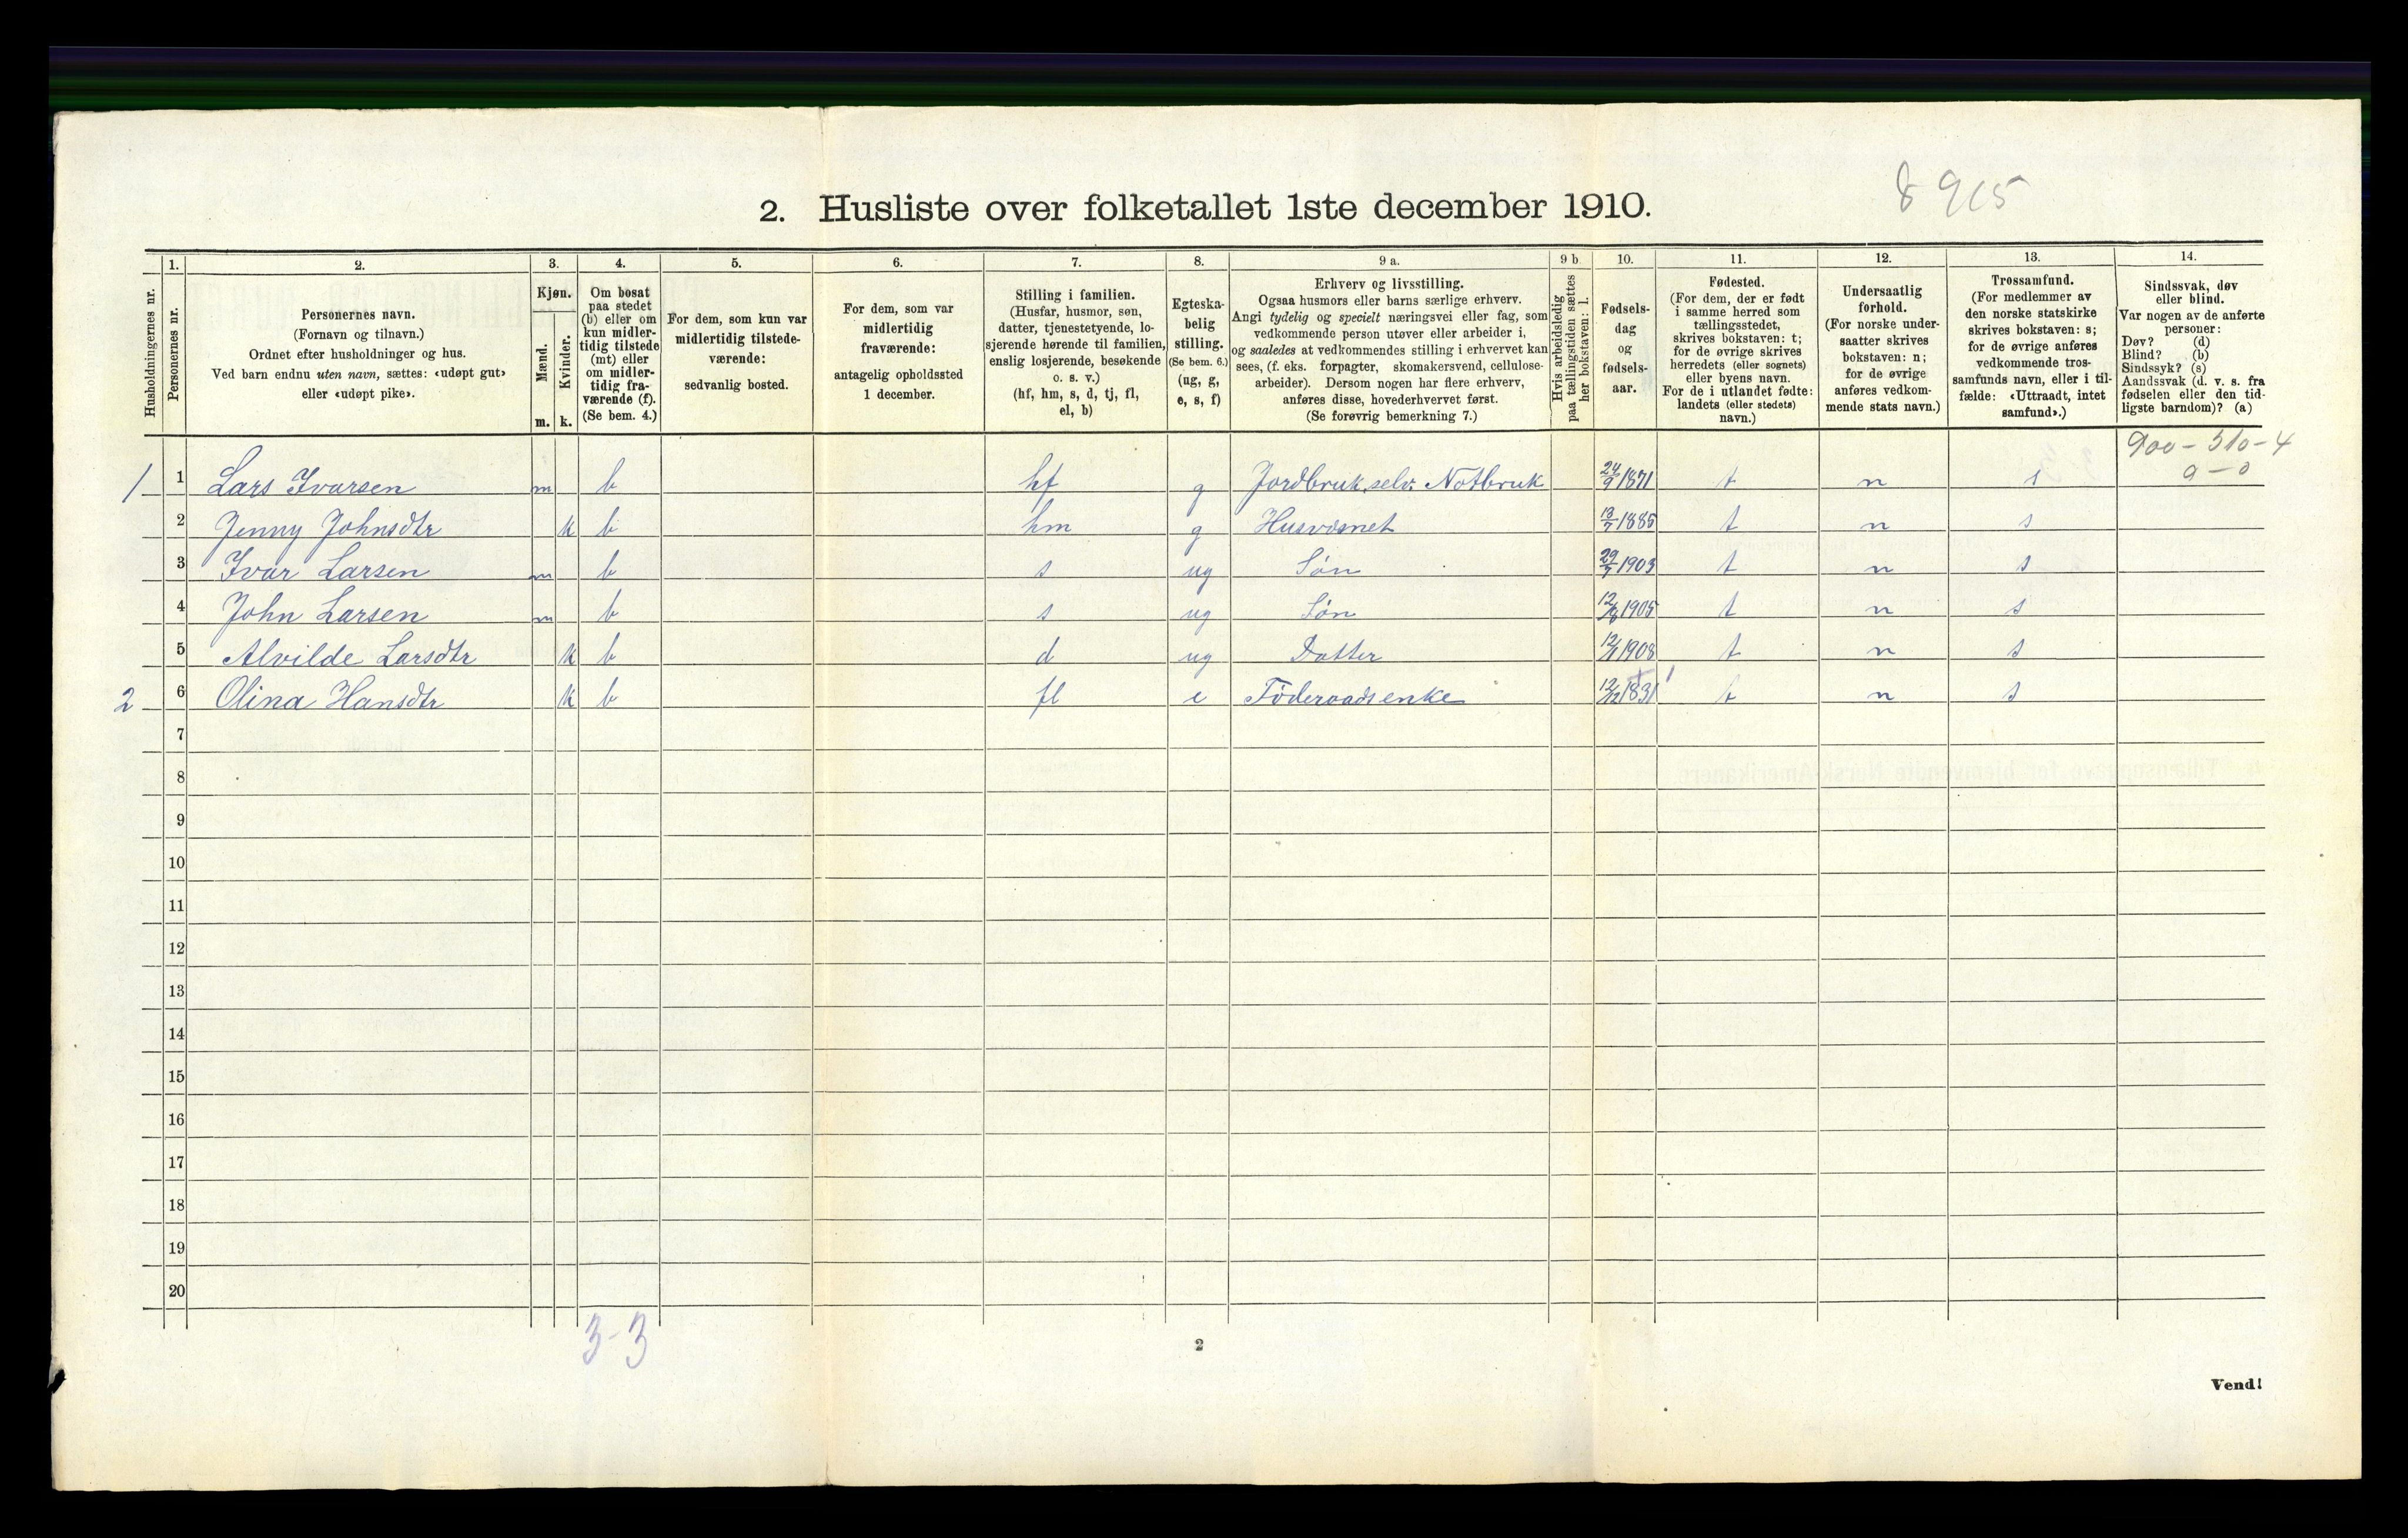 8 915
2. Husliste over folketallet 1ste december 1910.
Husholdningernes nr.
1.
Personernes nr.
2.
Personernes navn.
(Fornavn og tilnavn.)
Ordnet efter husholdninger og hus.
Ved barn endnu uten navn, sættes: «udøpt gut»
eller «udøpt pike».
3.
Kjøn.
Mænd.
m.
Kvinder.
k.
4.
Om bosat
paa stedet
(b) eller om
kun midler-
tidig tilstede
(mt) eller
om midler-
tidig fra-
værende (f).
(Se bem. 4.)
5.
For dem, som kun var
midlertidig tilstede-
værende:
sedvanlig bosted.
6.
For dem, som var
midlertidig
fraværende:
antagelig opholdssted
1 december.
7.
Stilling i familien.
(Husfar, husmor, søn,
datter, tjenestetyende, lo-
sjerende hørende til familien,
enslig losjerende, besøkende
o. s. v.)
(hf, hm, s, d, tj, fl,
el, b)
8.
Egteska-
belig
stilling.
(Se bem. 6.)
(ug, g,
e, s, f)
9 a.
Erhverv og livsstilling.
Ogsaa husmors eller barns særlige erhverv.
Angi tydelig og specielt næringsvei eller fag, som
vedkommende person utøver eller arbeider i,
og saaledes at vedkommendes stilling i erhvervet kan
sees, (f. eks. forpagter, skomakersvend, cellulose-
arbeider). Dersom nogen har flere erhverv,
anføres disse, hovederhvervet først.
(Se forøvrig bemerkning 7.)
9 b.
Hvis arbeidsledig
paa tællingstiden sættes
her bokstaven: l.
10.
Fødsels-
dag
og
fødsels-
aar.
11.
Fødested.
(For dem, der er født
i samme herred som
tællingsstedet,
skrives bokstaven: t;
for de øvrige skrives
herredets (eller sognets)
eller byens navn.
For de i utlandet fødte:
landets (eller stedets)
navn.)
12.
Undersaatlig
forhold.
(For norske under-
saatter skrives
bokstaven: n;
for de øvrige
anføres vedkom-
mende stats navn.)
13.
Trossamfund.
(For medlemmer av
den norske statskirke
skrives bokstaven: s;
for de øvrige anføres
vedkommende tros-
samfunds navn, eller i til-
fælde: «Uttraadt, intet
samfund».)
14.
Sindssvak, døv
eller blind.
Var nogen av de anførte
personer:
Døv? (d)
Blind? (b)
Sindssyk? (s)
Aandssvak (d. v. s. fra
fødselen eller den tid-
ligste barndom)? (a)
900-510-4
0-0
1 1 Lars Ivarsen m b hf g Jordbruk, selv. Notbruk 24/9 1871 t n s
2 Jenny Johnsdtr k b hm g Husvæsnet 13/7 1885 t n s
3 Ivar Larsen m b s ug Søn 29/7 1903 t n s
4 John Larsen m b s ug Søn 1905 t n s
5 Alvilde Larsdtr k b d ug Datter 1908 t n s
2 6 Olina Hansdtr k b fl e Føderaadsenke 12/12 1831 t n s
7
8
9
10
11
12
13
14
15
16
17
18
19
20
3-3
2
Vend!